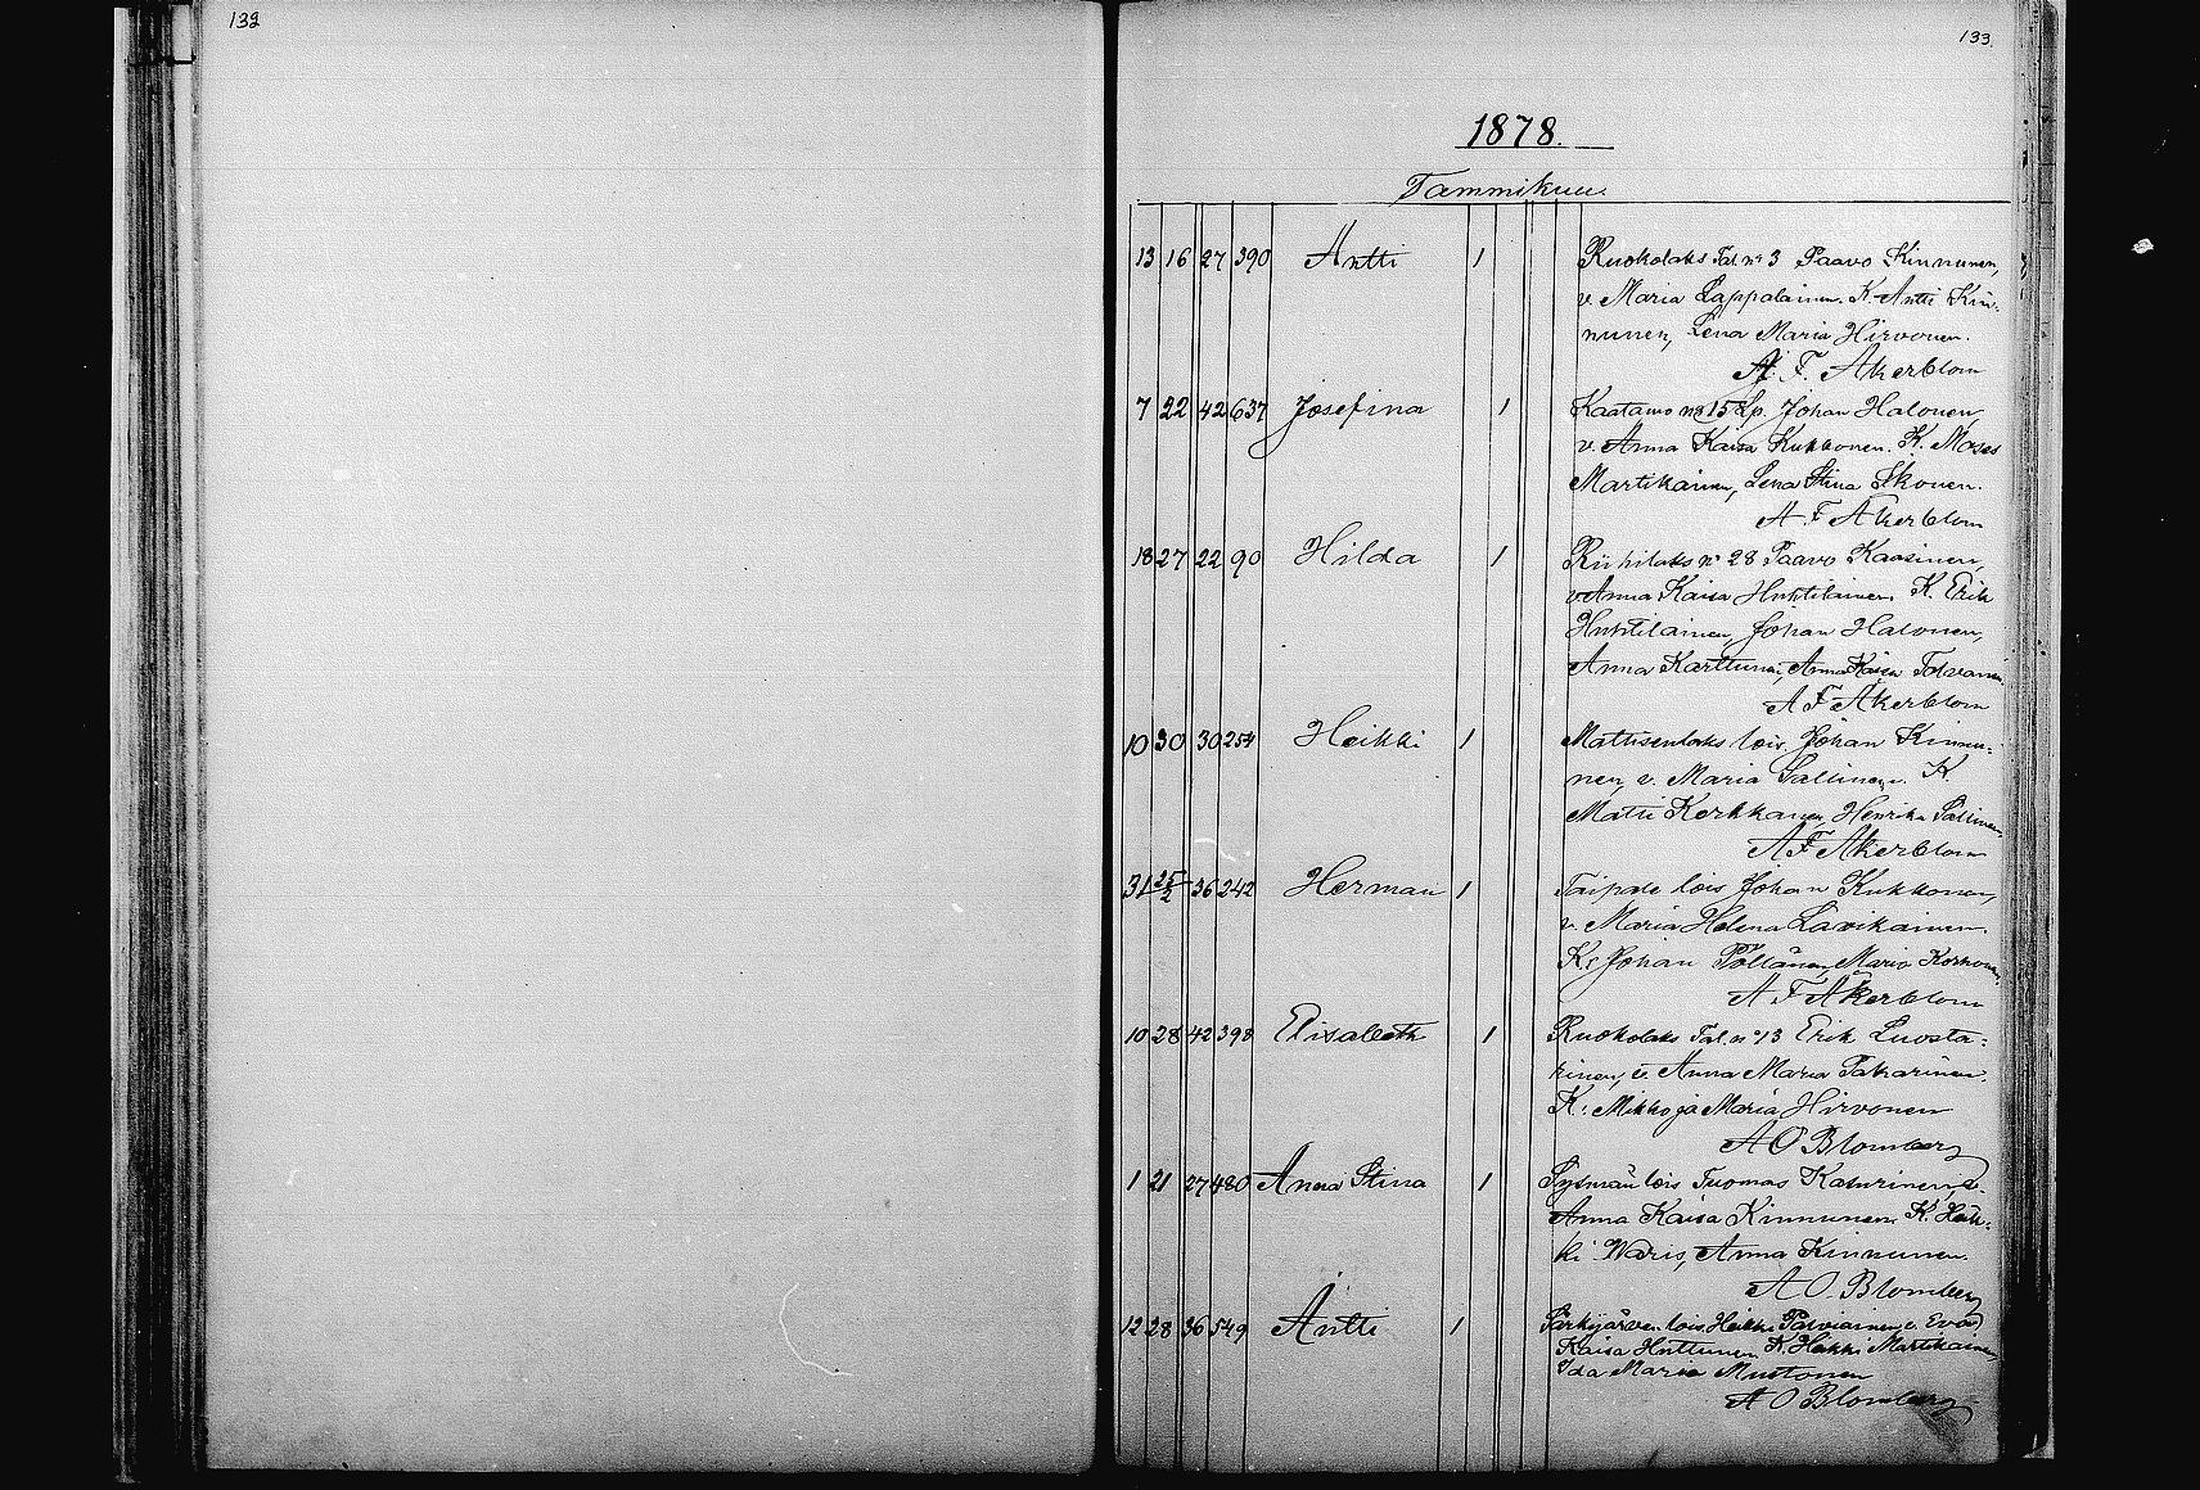 132
133.
1878.
Tammikuu.
13 16 27 390 Antti 1 Ruokolaks Tal. no 3 Paavo Kinnunen,
v. Maria Lappalainen. K. Antti Kin-
nunen, Lena Maria Hirvonen.
A. F. Åkerblom
7 22 42 637 Josefina 1 Kaatamo no 15 Lp. Johan Halonen,
v. Anna Kaisa Kukkonen. K. Moses
Martikainen, Lena Stina Ikonen.
A. F Åkerblom
18 27 22 90 Hilda 1 Riihilaks no 28 Paavo Kaasinen,
v Anna Kaisa Huhtilainen. K. Erik
Huhtilainen, Johan Halonen,
Anna Karttunen, Anna Kaisa Tolvanen.
A F Åkerblom
10 30 30 254 Heikki 1 Mattisenlaks lois. Johan Kinnu-
nen, v. Maria Sallinen. K
Matti Korkkanen, Henrika Sallinen,
A F Åkerblom
31 25/2 36 242 Herman 1 Taipale lois Johan Kukkonen,
v. Maria Helena Lavikainen.
K: Johan Pöllänen, Maria Korhonen,
A F Åkerblom
10 28 42 398 Elisabeth 1 Ruokolaks Tal. no 13 Erik Luosta-
rinen, v. Anna Maria Pakarinen.
K: Mikko ja Maria Hirvonen
A O Blomberg
1 21 27 480 Anna Stina 1 Sysmän lois Tuomas Kasurinen, v.
Anna Kaisa Kinnunen. K. Heik-
ki Waris, Anna Kinnunen.
A O. Blomberg
12 28 36 549 Antti 1 Särkijärven lois. Heikki Parviainen v. Eva
Kaisa Huttunen K. Heikki Martikainen,
Ida Maria Mustonen
A O Blomberg